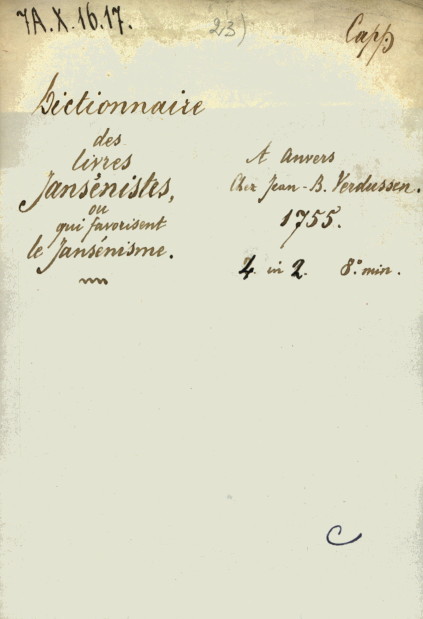 7A.X.16.17.
23)
Capp.
Dictionnaire
des
livres
Jansénistes,
ou
qui favorisent
le Jansénisme.
A Anvers
Chez Jean-B. Verdussen.
1755.
4 in 2. 8º min.
C